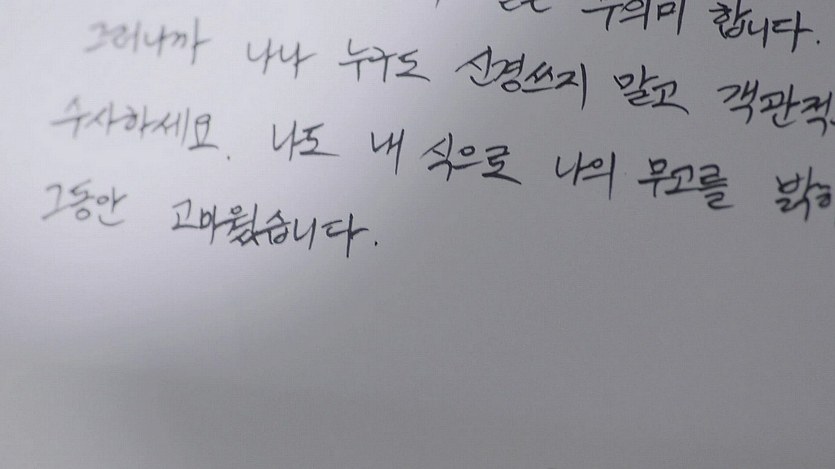 무의미 합니다.
그러니까 나나 누구도 신경쓰지 말고 객관적
수사하세요. 나도 내 식으로 나의 무고를
그동안 고마웠습니다.